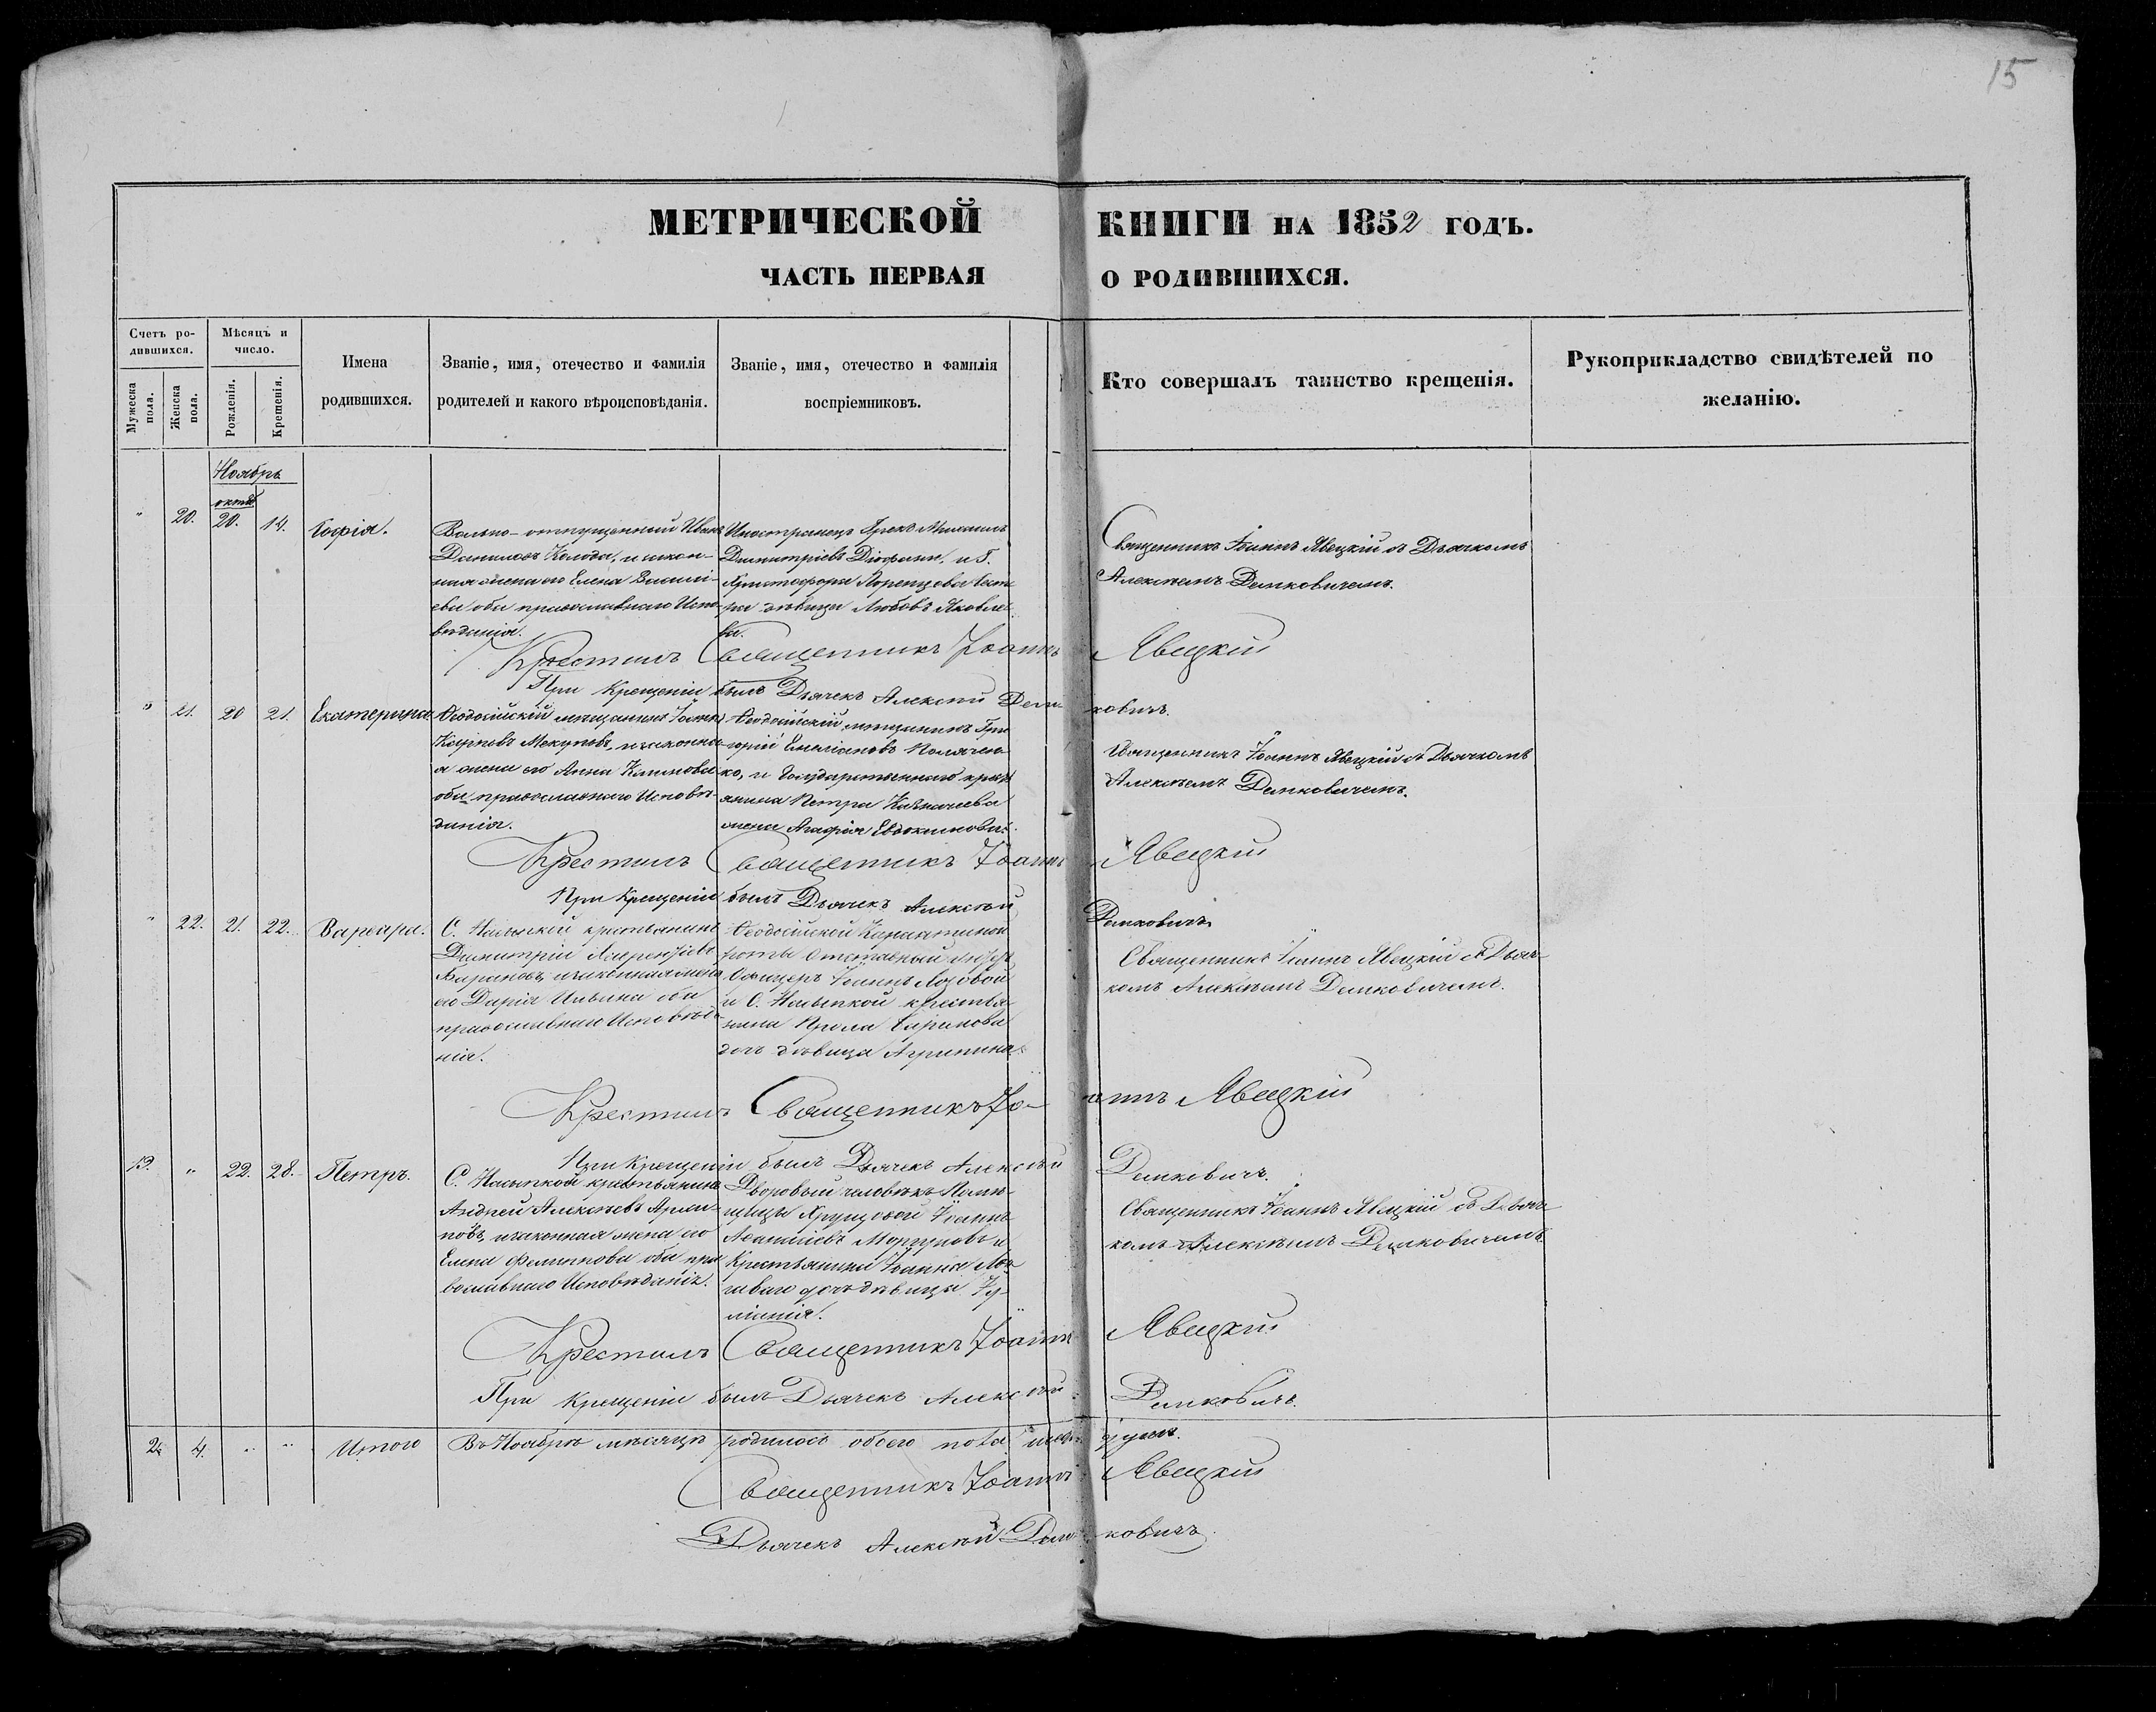 15
МЕТРИЧЕСКОЙ КНИГИ НА 1852 ГОДЪ.
ЧАСТЬ ПЕРВАЯ О РОДИВШИХСЯ.
Счетъ ро-
дившихся.
Мужеска пола.
Женска пола.
Мѣсяцъ и
число.
Рожденія.
Крещенія.
Имена
родившихся.
Званіе, имя, отечество и фамилія
родителей и какого вѣроисповѣданія.
Званіе, имя, отечество и фамилія
воспріемниковъ.
Кто совершалъ таинство крещенія.
Рукоприкладство свидѣтелей по
желанію.
Ноябрь
октяб
" 20. 20. 14. Софія.
Вольно-отпущенный Иванъ
Даниловъ Колода, и закон-
ная жена его Елена Васили-
ева оба православнаго Испо-
вѣданія.
Иностранецъ Грекъ Михаилъ
Димитріевъ и Г.
Христофора сест
ра дѣвица Любовь Яковле
ва.
Священникъ Іоаннъ Явецкій съ Дьячкомъ
Алексѣемъ Демковичемъ.
Крестилъ Священникъ Іоаннъ Явецкій
При Крещеніи былъ Дьячекъ Алексѣй Демковичъ.
" 21. 20 21. Екатерина
Ѳеодосійскій мѣщанинъ Іоаннъ
Карповъ Мекуновъ, и законна
я жена его Анна Климова
оба православнаго Исповѣ-
данія.
Ѳеодосійскій мѣщанинъ Гри
горій Емельяновъ Полячен
ко, и Государственнаго крест
янина Петра Казначеева
жена Агафія Евдокимова.
Священникъ Іоаннъ Явецкій съ Дьячкомъ
Алексѣемъ Демковичемъ.
Крестилъ Священникъ Іоаннъ Явецкій
При Крещеніи былъ Дьячекъ Алексѣй Демковичъ
" 22. 21. 22. Варвара.
С. Насыпкой крестьянинъ
Димитрій Лаврентіевъ
Барановъ, и законная жена
его Дарія Ильина оба
православнаго Исповѣда-
нія.
Ѳеодосійской Карантинной
роты Отставный Унтеръ
Офицеръ Іоаннъ Лозовой
и С. Насыпкой крестья-
нина
дочь дѣвица Агрипина.
Священникъ Іоаннъ Явецкій съ Дьяч-
комъ Алексѣемъ Демковичемъ.
Крестилъ Священникъ Іоаннъ Явецкій
При Крещеніи былъ Дьячекъ Алексѣй Демковичъ.
13. " 22. 28. Петръ.
С. Насыпкой крестьянинъ
Андрей Алексѣевъ
повъ, и законная жена его
Елена Филипова оба пра
вославнаго Исповѣданія.
Дворовый человѣкъ Помѣ-
щицы Хрущовой Іоаннъ
Моргуновъ и
Крестьянина Іоанна
дочь дѣвица Іу-
лианія.
Священникъ Іоаннъ Явецкій съ Дьяч
комъ Алексѣемъ Демковичемъ.
Крестилъ Священникъ Іоаннъ Явецкій
При Крещеніи былъ Дьячекъ Алексѣй Демковичъ.
2. 4. " " Итого Въ Ноябрѣ мѣсяцѣ родилось обоего пола шесть душъ.
Священникъ Іоаннъ Явецкій
Дьячекъ Алексѣй Демковичъ.